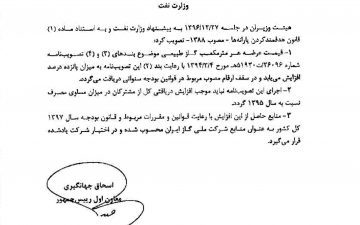 وزارت نفت
هیئت وزیران در جلسه ۱۳۹۶/۱۲/۲۷ به پیشنهاد وزارت نفت و به استناد ماده (۱)
قانون هدفمندکردن یارانه‌ها - مصوب ۱۳۸۸- تصویب کرد:
۱- قیمت عرضه هر مترمکعب گاز طبیعی موضوع بندهای (۳) و (۴) تصویب‌نامه
شماره ۲۶۰۹۶/ت۵۱۹۳۰هـ مورخ ۱۳۹۴/۳/۴ با رعایت بند (۲) این تصویب‌نامه به میزان پانزده درصد
افزایش می‌یابد و در سقف ارقام مصوب مربوط در قوانین بودجه سنواتی دریافت می‌گردد.
۲- اجرای این تصویب‌نامه نباید موجب افزایش دریافتی کل از مشترکان در میزان مساوی مصرف
نسبت به سال ۱۳۹۵ گردد.
۳- منابع حاصل از این افزایش با رعایت قوانین و مقررات مربوط و قانون بودجه سال ۱۳۹۷
کل کشور به عنوان منابع شرکت ملی گاز ایران محسوب شده و در اختیار شرکت یادشده
قرار می‌گیرد.
اسحاق جهانگیری
معاون اول رییس‌جمهور